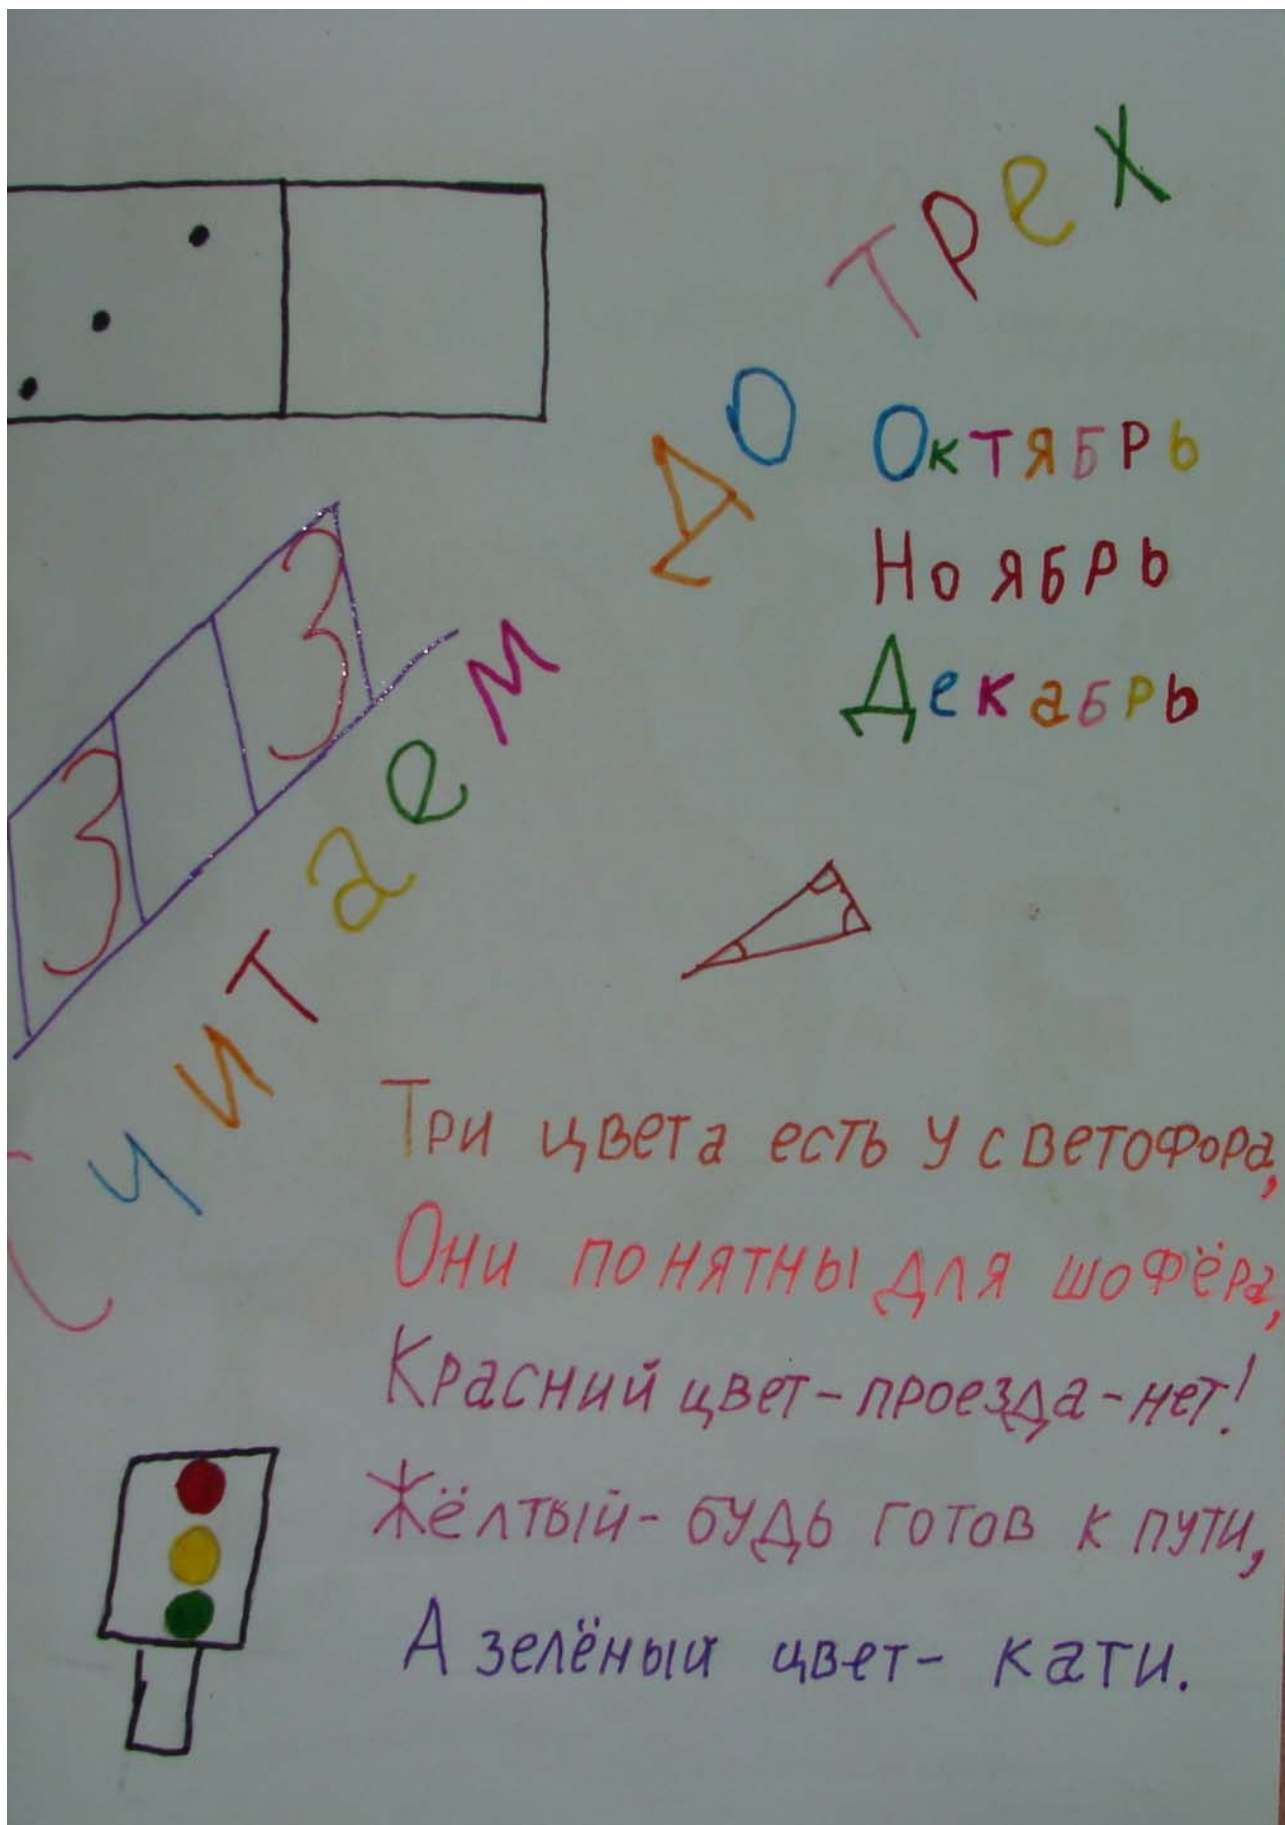 Считаем до трех
Октябрь
Ноябрь
Декабрь
3 3
Три цвета есть у светофора,
Они понятны для шофёра,
Красний цвет-проезда-нет!
Жёлтый-будь готов к пути,
А зелёный цвет-кати.